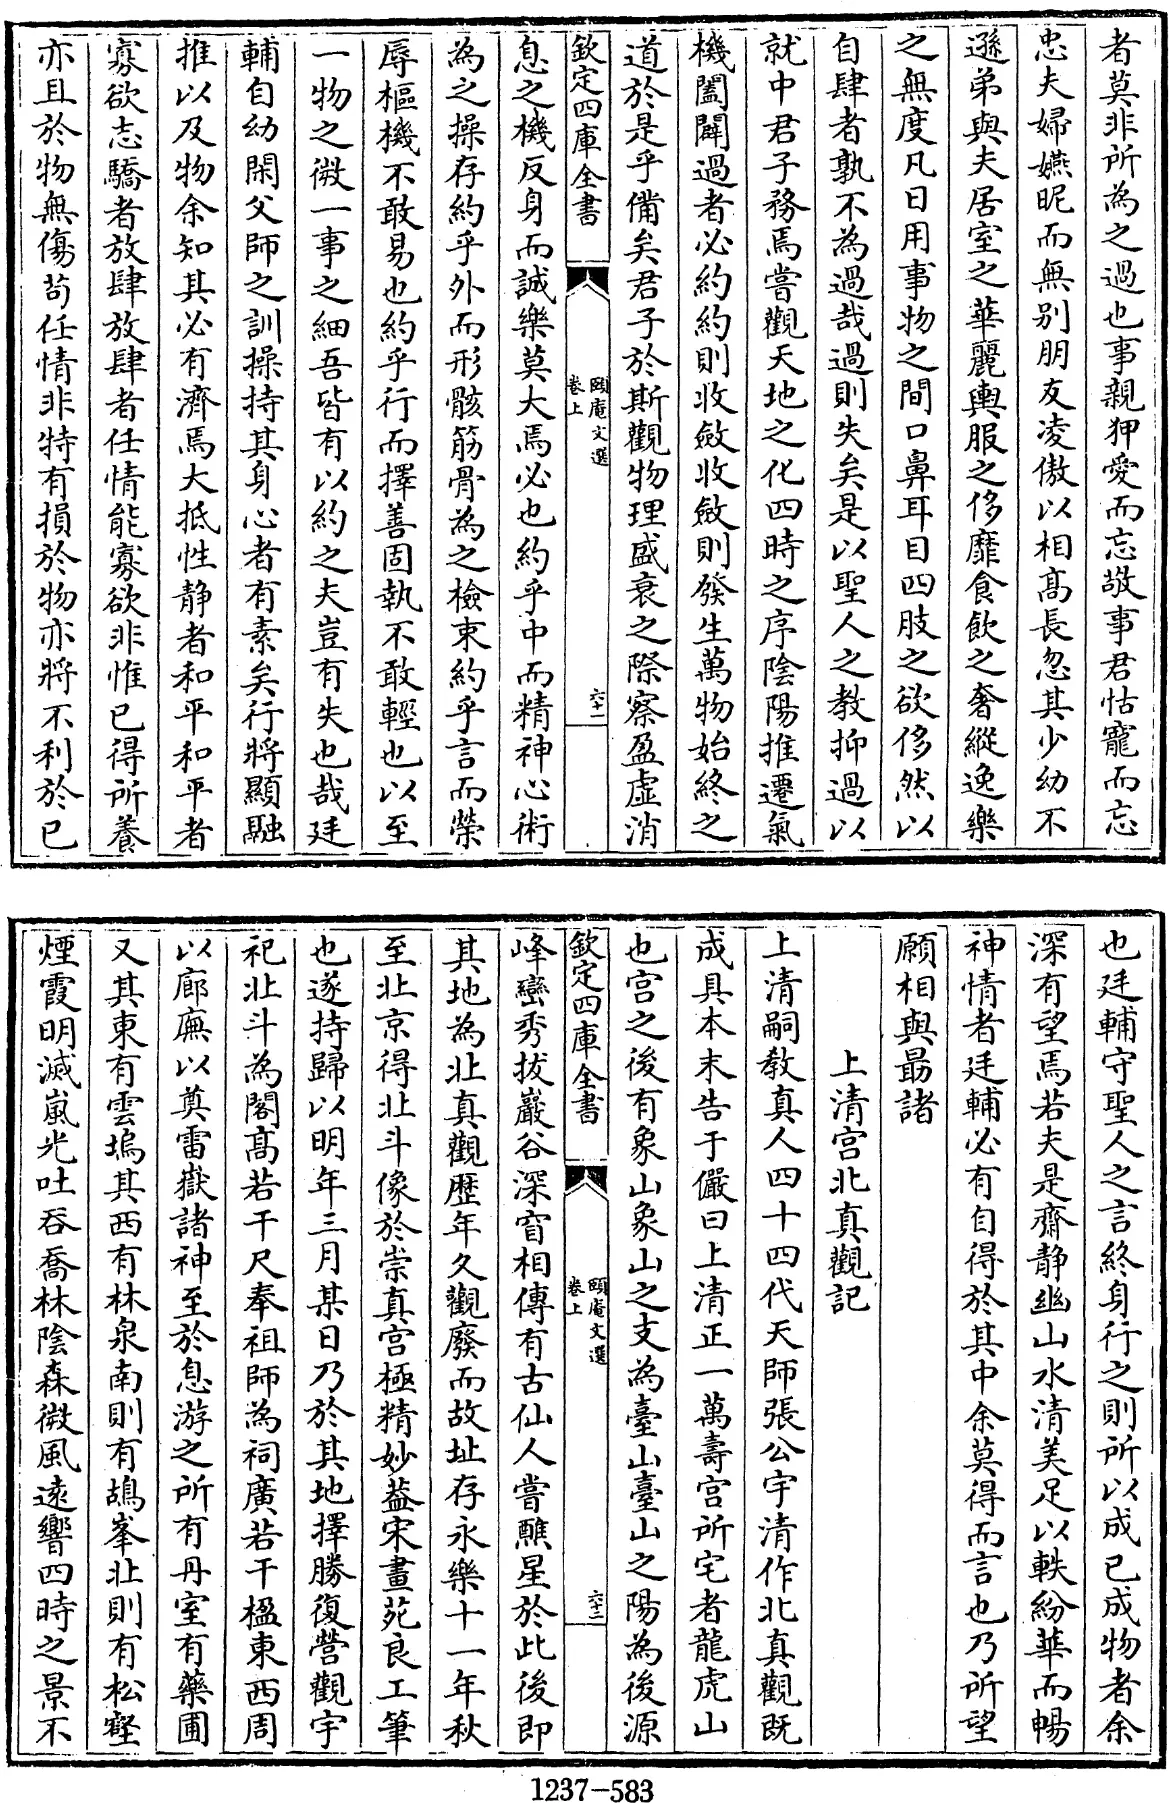 者莫非所為之過也事親狎愛而忘敬事君怙寵而忘
忠夫婦嬿昵而無別朋友凌傲以相髙長忽其少幼不
遜弟與夫居室之華麗輿服之侈靡食飲之奢縱逸樂
之無度凡日用事物之間口鼻耳目四肢之欲侈然以
自肆者孰不為過哉過則失矣是以聖人之教抑過以
就中君子務焉嘗觀天地之化四時之序陰陽推遷氣
機闔闢過者必約約則收斂收斂則發生萬物始終之
道於是乎備矣君子於斯觀物理盛衰之際察盈虛消
欽定四庫全書
頤庵文選
卷上
六十一
息之機反身而誠樂莫大焉必也約乎中而精神心術
為之操存約乎外而形骸筋骨為之檢束約乎言而榮
辱樞機不敢易也約乎行而擇善固執不敢輕也以至
一物之微一事之細吾皆有以約之夫豈有失也哉廷
輔自幼閑父師之訓操持其身心者有素矣行將顯融
推以及物余知其必有濟焉大抵性静者和平和平者
寡欲志驕者放肆放肆者任情能寡欲非惟已得所養
亦且於物無傷苟任情非特有損於物亦將不利於已
也廷輔守聖人之言終身行之則所以成已成物者余
深有望焉若夫是齋静幽山水清美足以軼紛華而暢
神情者廷輔必有自得於其中余莫得而言也乃所望
願相與朂諸
上清宫北真觀記
上清嗣教真人四十四代天師張公宇清作北真觀既
成具本末告于儼曰上清正一萬壽宫所宅者龍虎山
也宫之後有象山象山之支為臺山臺山之陽為後源
欽定四庫全書
頤庵文選
卷上
六十二
峰巒秀拔巖谷深窅相傳有古仙人嘗醮星於此後即
其地為北真觀歷年久觀廢而故址存永樂十一年秋
至北京得北斗像於崇真宫極精妙葢宋畫苑良工筆
也遂持歸以明年三月某日乃於其地擇勝復營觀宇
祀北斗為閣髙若干尺奉祖師為祠廣若干楹東西周
以廊廡以奠雷嶽諸神至於息游之所有丹室有藥圃
又其東有雲塢其西有林泉南則有鴣峯北則有松壑
煙霞明滅嵐光吐吞喬林陰森微風逺響四時之景不
1237-583